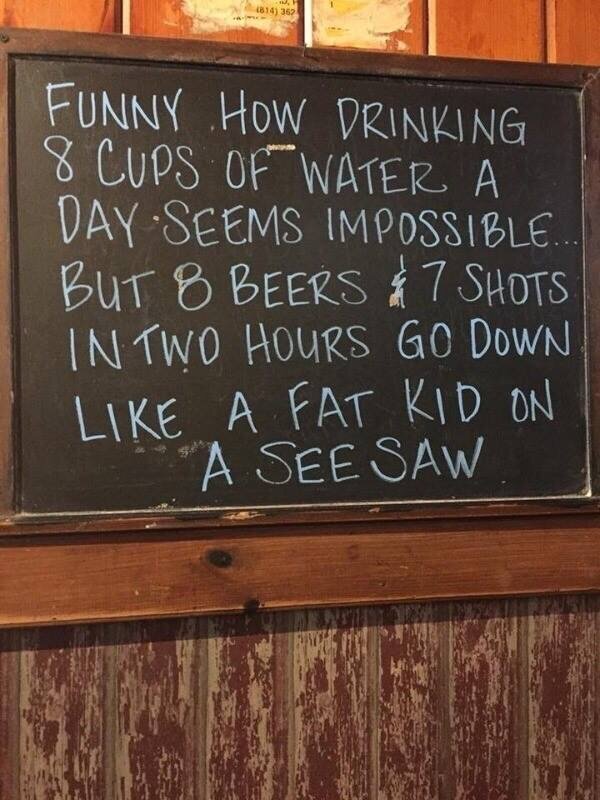 (814) 362
FUNNY HOW DRINKING
8 CUPS OF WATER A
DAY SEEMS IMPOSSIBLE...
BUT 8 BEERS & 7 SHOTS
IN TWO HOURS GO DOWN
LIKE A FAT KID ON
A SEESAW